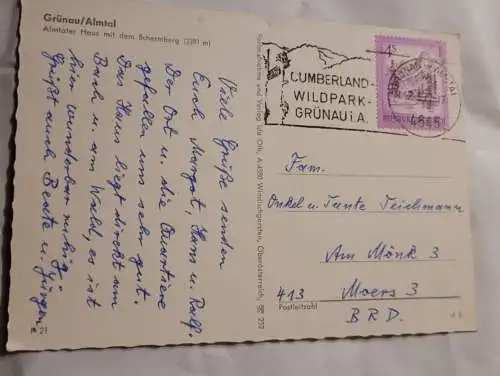 Grünau/Almtal
Almtaler Haus mit dem Schermberg (2391 m)
Viele Grüße senden
Euch Margot, Hans u. Ralf.
Der Ort u. die Quartiere
gefallen uns sehr gut.
Das Haus liegt direkt am
Bach u. am Wald, es ist
hier wunderbar ruhig.
Grüßt auch Beate u. Jürgen
21
Farbaufnahme und Verlag Ida Orb, A-4580 Windischgarsten, Oberösterreich, 259
CUMBERLAND-
WILDPARK-
GRÜNAU i.A.
S
4645
Fam.
Onkel u. Tante Teichmann
Am Mönk 3
413 Moers 3
Postleitzahl
B.R.D.